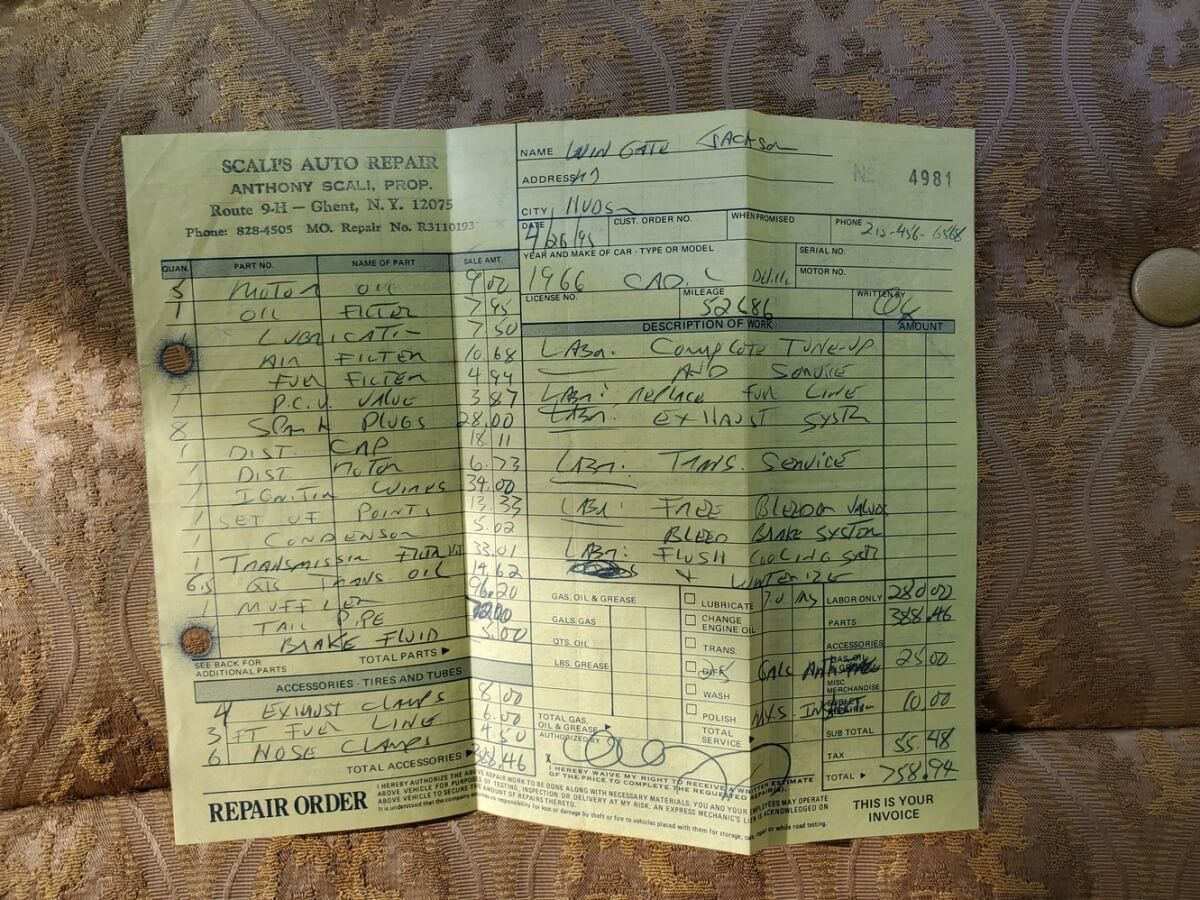 SCALI'S AUTO REPAIR
ANTHONY SCALI, PROP.
Route 9-H — Ghent, N. Y. 12075
Phone: 828-4505 MO. Repair No. R3110193
NAME WIN GATE JACKSON
ADDRESS
CITY HUDSON
No 4981
DATE 4/26/95
CUST. ORDER NO.
WHEN PROMISED
PHONE 212-456-6568
YEAR AND MAKE OF CAR - TYPE OR MODEL
1966 CAD.
SERIAL NO.
MOTOR NO.
LICENSE NO.
MILEAGE 52686
WRITTEN BY
QUAN. PART NO. NAME OF PART SALE AMT.
5 MOTOR OIL 9.00
1 OIL FILTER 7.95
LUBRICATION 7.50
AIR FILTER 10.68
FUEL FILTER 4.94
1 P.C.V. VALVE 3.87
8 SPARK PLUGS 28.00
1 DIST. CAP 18.11
1 DIST ROTOR 6.73
1 IGNITION WIRES 34.00
1 SET OF POINTS 13.33
1 CONDENSOR 5.02
1 TRANSMISSION FILTER KIT 33.01
6.5 QTS TRANS OIL 14.62
1 MUFFLER 96.20
TAIL PIPE
BRAKE FLUID 3.00
SEE BACK FOR
ADDITIONAL PARTS
TOTAL PARTS
ACCESSORIES - TIRES AND TUBES
4 EXHAUST CLAMPS 8.00
3 FT FUEL LINE 6.00
6 HOSE CLAMPS 4.50
TOTAL ACCESSORIES 388.46
DESCRIPTION OF WORK AMOUNT
LABOR: COMPLETE TUNE-UP
AND SERVICE
LABOR: REPLACE FUEL LINE
LABOR: EXHAUST SYSTEM
LABOR: TRANS. SERVICE
LABOR: FREE BLEEDER VALVES
BLEED BRAKE SYSTEM
LABOR: FLUSH COOLING SYST
+ WINTERIZE
GAS, OIL & GREASE
GALS. GAS
QTS. OIL
LBS. GREASE
TOTAL GAS,
OIL & GREASE
LUBRICATE 7.0 HRS
CHANGE
ENGINE OIL
TRANS.
DIFF.
WASH
POLISH
TOTAL
SERVICE
2.5 GALS
N.Y.S.
LABOR ONLY 280.00
PARTS 388.46
ACCESSORIES
GAS, OIL
& GREASE 25.00
MISC
MERCHANDISE
SUBLET
REPAIRS 10.00
SUB TOTAL
TAX 55.48
TOTAL 758.94
AUTHORIZED BY
X
I HEREBY WAIVE MY RIGHT TO RECEIVE A WRITTEN ESTIMATE
OF THE PRICE TO COMPLETE THE REQUESTED REPAIR(S).
REPAIR ORDER
I HEREBY AUTHORIZE THE ABOVE REPAIR WORK TO BE DONE ALONG WITH NECESSARY MATERIALS. YOU AND YOUR EMPLOYEES MAY OPERATE
ABOVE VEHICLE FOR PURPOSES OF TESTING, INSPECTION OR DELIVERY AT MY RISK. AN EXPRESS MECHANIC'S LIEN IS ACKNOWLEDGED ON
ABOVE VEHICLE TO SECURE THE AMOUNT OF REPAIRS THERETO.
It is understood that the company assumes no responsibility for loss or damage by theft or fire to vehicles placed with them for storage, sale, repair or while road testing.
THIS IS YOUR
INVOICE